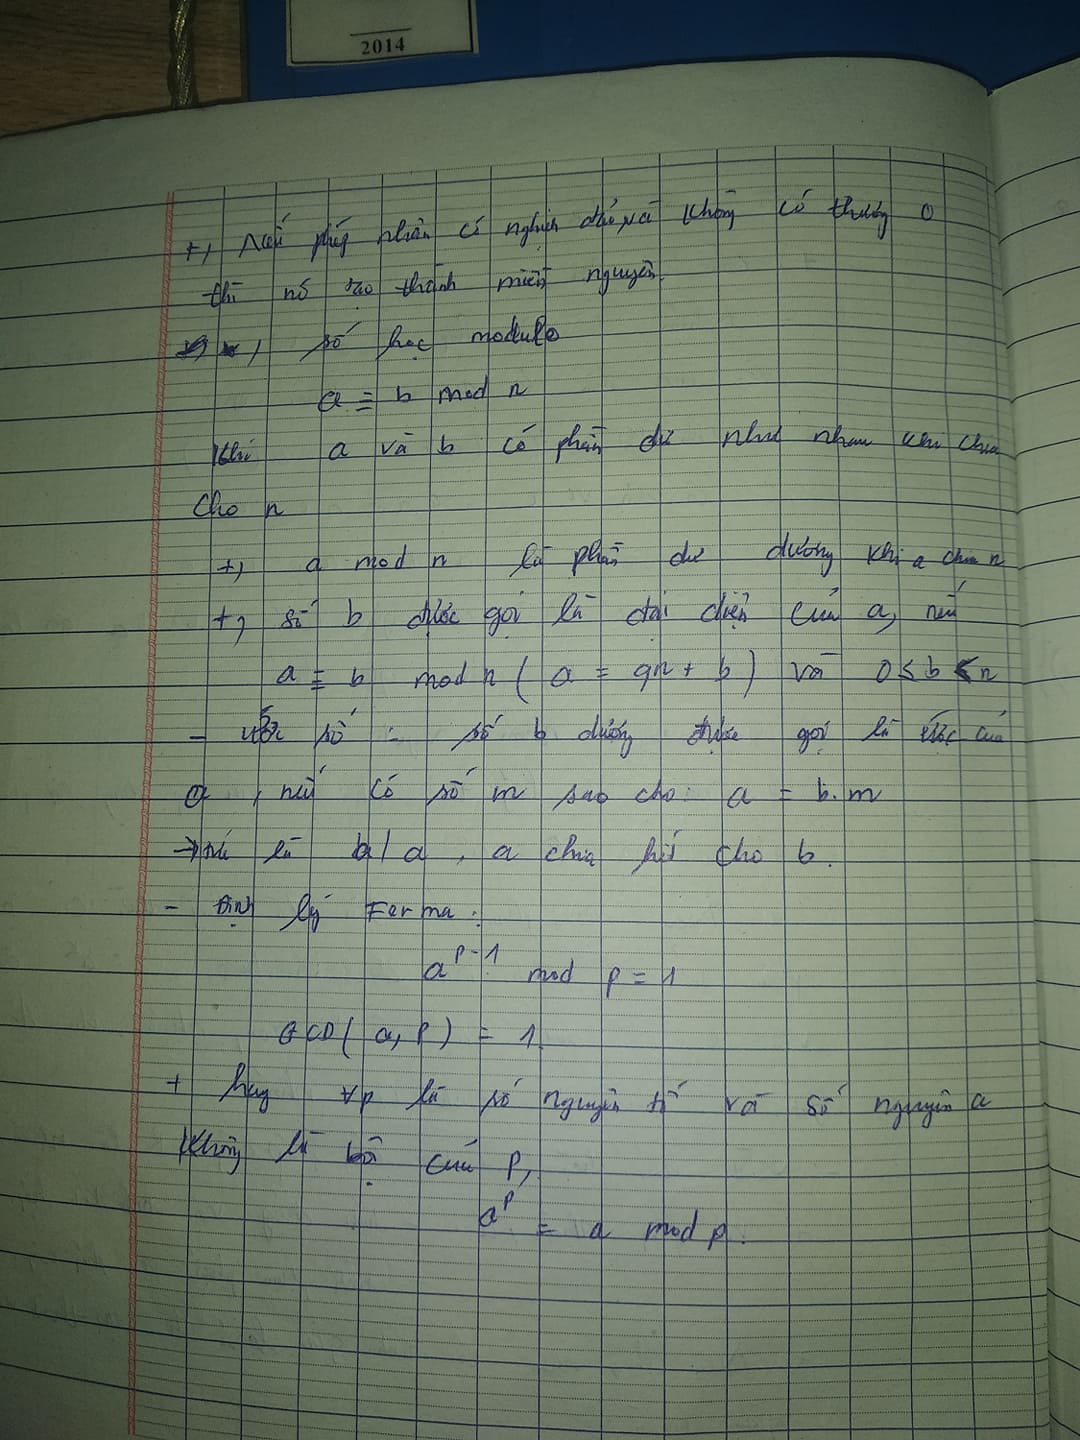 2014
+, Nếu phép nhân có nghịch đảo và không có thương 0
thì nó tạo thành miền nguyên.
, số học modulo
a ≡ b mod n
Khi a và b có phần dư như nhau khi chia
cho n
+, a mod n là phần dư dương khi a chia n
+, số b được gọi là đại diện của a, nếu
a ≡ b mod n ( a = qn + b ) và 0 ≤ b < n
- ước số : số b dương được gọi là ước của
a , nếu có số m sao cho: a = b.m
→ là b/a , a chia hết cho b.
- Định lý Ferma :
a^{p-1} mod p = 1
GCD( a, p ) = 1.
+ hay ∀p là số nguyên tố và số nguyên a
không là bội của p,
a^p = a mod p.